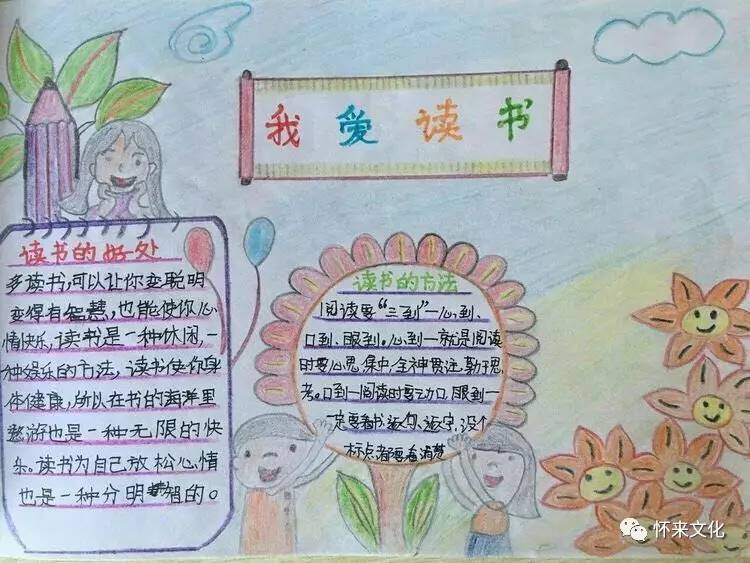 我爱读书
读书的好处
多读书,可以让你变聪明
变得有智慧,也能使你心
情快乐,读书是一种休闲,一
种娱乐的方法,读书使你身
体健康,所以在书的海洋里
遨游也是一种无限的快
乐。读书为自己放松心情
也是一种分明智的。
读书的方法
阅读要“三到”一心到、
口到、眼到。心到一就是阅读
时要心思集中,全神贯注,勤于思
考。口到一阅读时要动口,眼到一
一定要看书逐句、逐字,没个
标点,都要看清楚
怀来文化